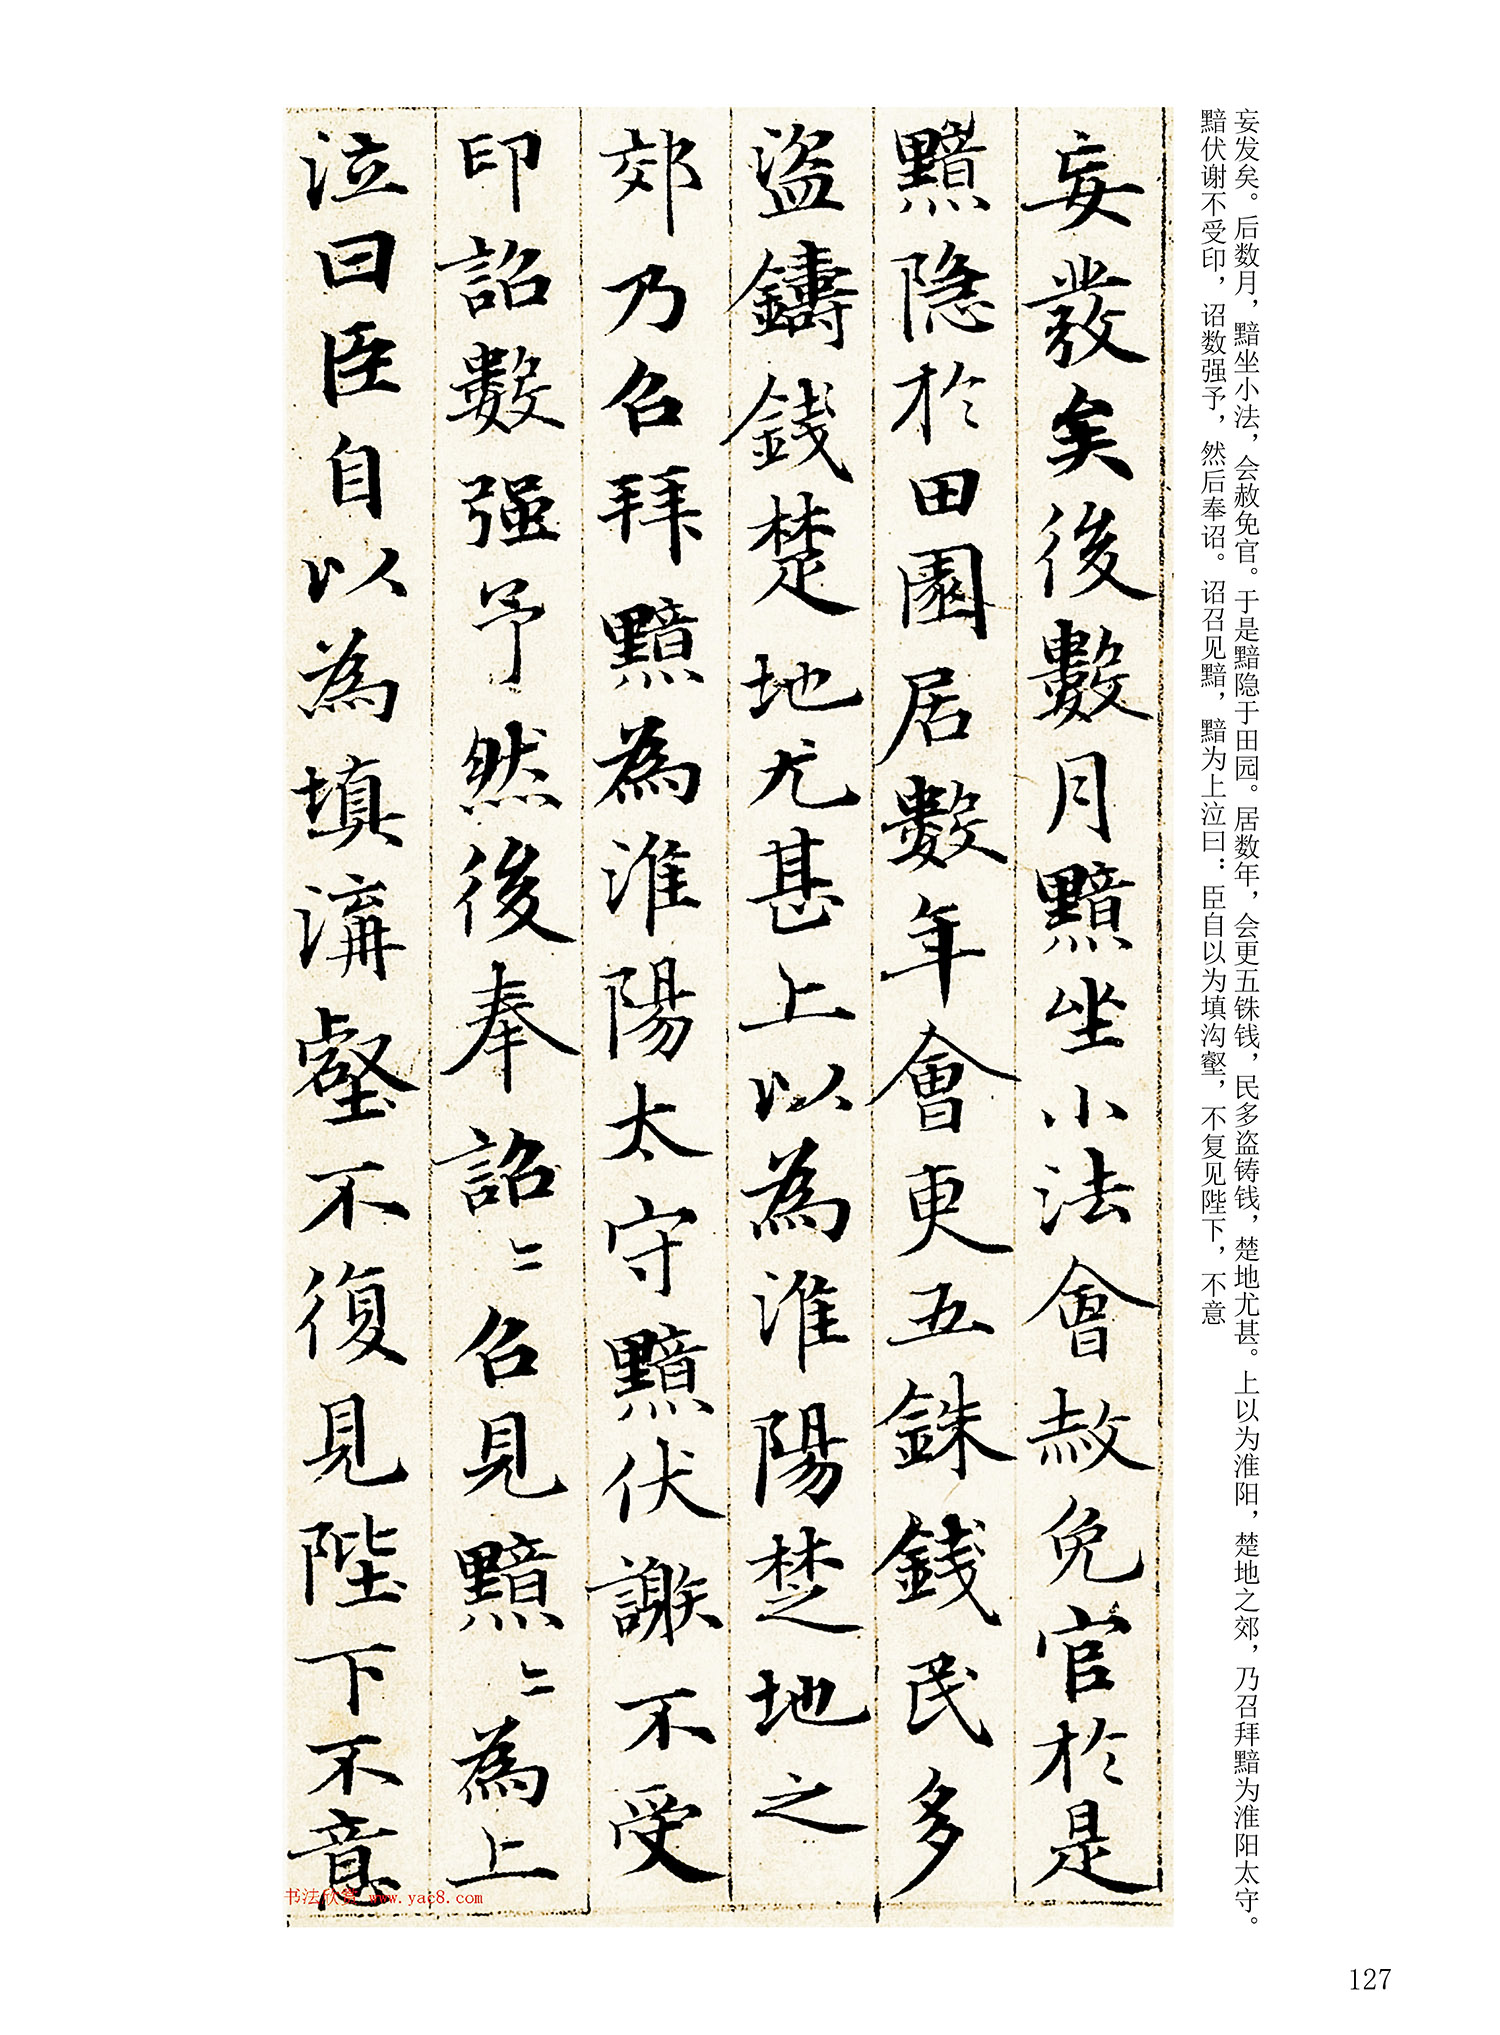 妄发矣。后数月，黯坐小法，会赦免官。于是黯隐于田园。居数年，会更五铢钱，民多盗铸钱，楚地尤甚。上以为淮阳，楚地之郊，乃召拜黯为淮阳太守。
黯伏谢不受印，诏数强予，然后奉诏。诏召见黯，黯为上泣曰：臣自以为填沟壑，不复见陛下，不意
妄發矣後數月黯坐小法會赦免官於是
黯隱於田園居數年會更五銖錢民多
盜鑄錢楚地尤甚上以為淮陽楚地之
郊乃召拜黯為淮陽太守黯伏謝不受
印詔數强予然後奉詔〻召見黯〻為上
泣曰臣自以為填溝壑不復見陛下不意
书法欣赏 www.yac8.com
127